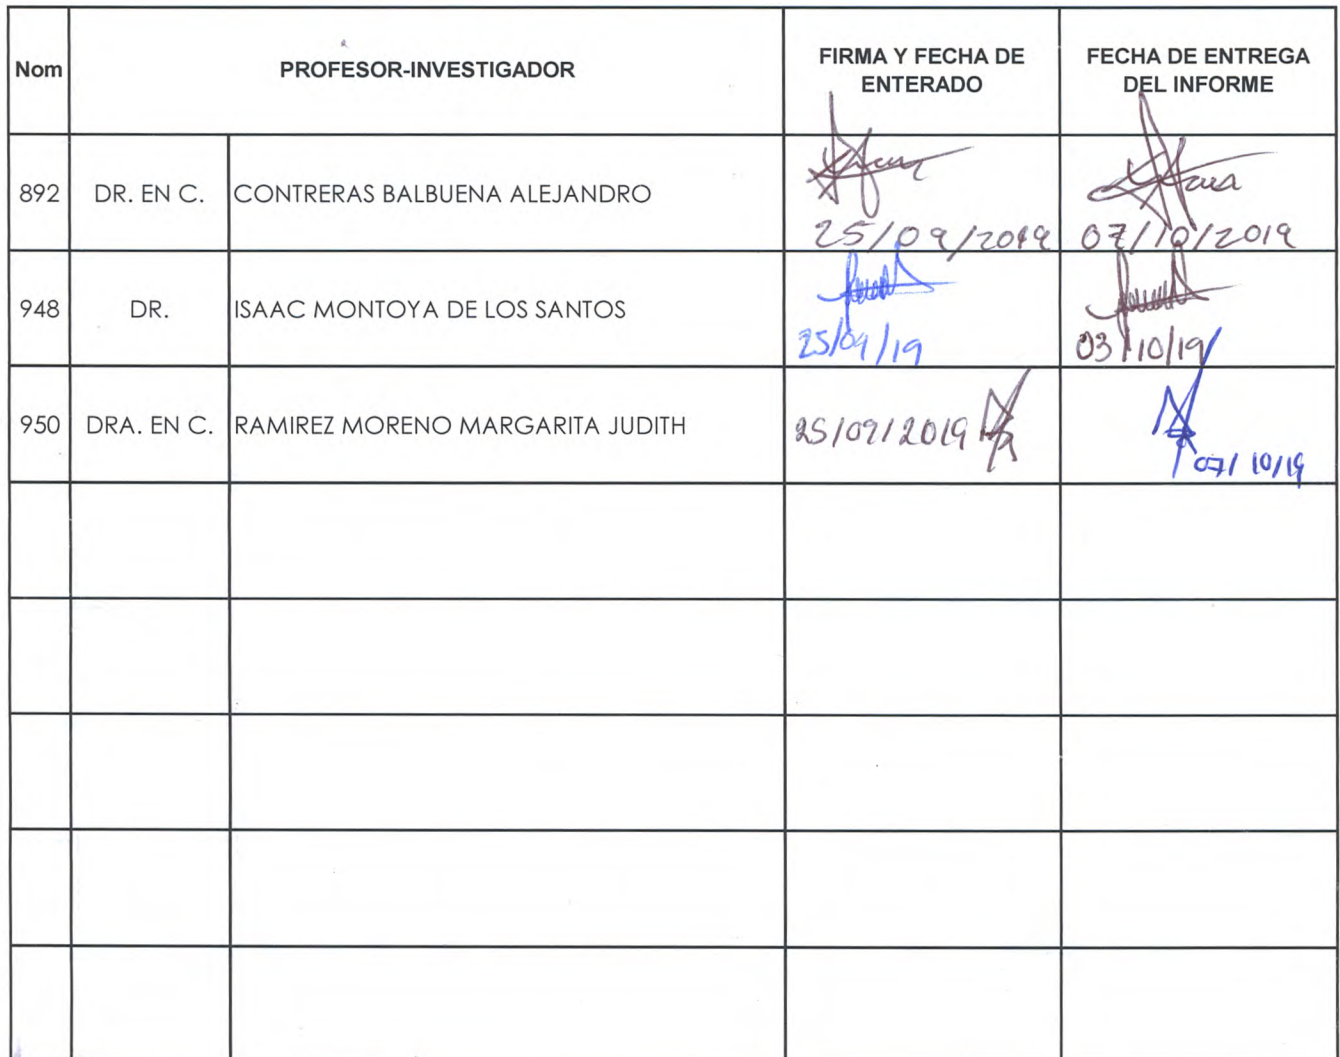 Nom
PROFESOR-INVESTIGADOR
FIRMA Y FECHA DE
ENTERADO
FECHA DE ENTREGA
DEL INFORME
892
DR. EN C.
CONTRERAS BALBUENA ALEJANDRO
25/09/2019
07/10/2019
948
DR.
ISAAC MONTOYA DE LOS SANTOS
25/09/19
03/10/19
950
DRA. EN C.
RAMIREZ MORENO MARGARITA JUDITH
25/09/2019
07/10/19